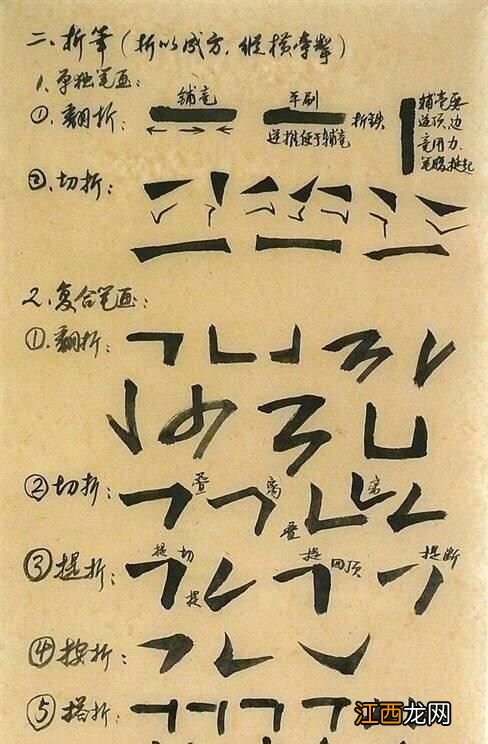 二、折笔(折以成方,纵横牵掣)
1、单独笔画:
①、翻折:
铺毫
平刷
折铁
逆推便于铺毫
铺毫要
逆顶,边
毫用力,
笔腹挺起
②、切折:
2、复合笔画:
①、翻折:
②切折:
叠
离
叠
离
③提折:
提
切
提
提
回顶
提断
④按折:
⑤搭折:
江西龙网